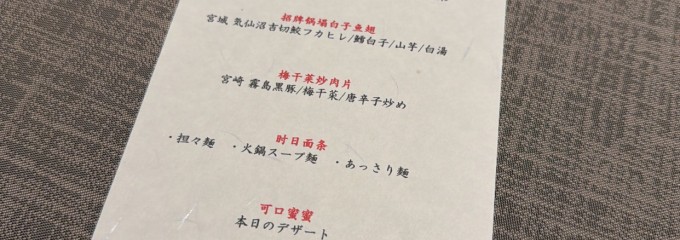 招牌锅塌白子鱼翅
宮城 気仙沼吉切鮫フカヒレ/鱈白子/山芋/白湯
梅干菜炒肉片
宮崎 霧島黒豚/梅干菜/唐辛子炒め
时日面条
・担々麺 ・火鍋スープ麺 ・あっさり麺
可口蜜蜜
本日のデザート